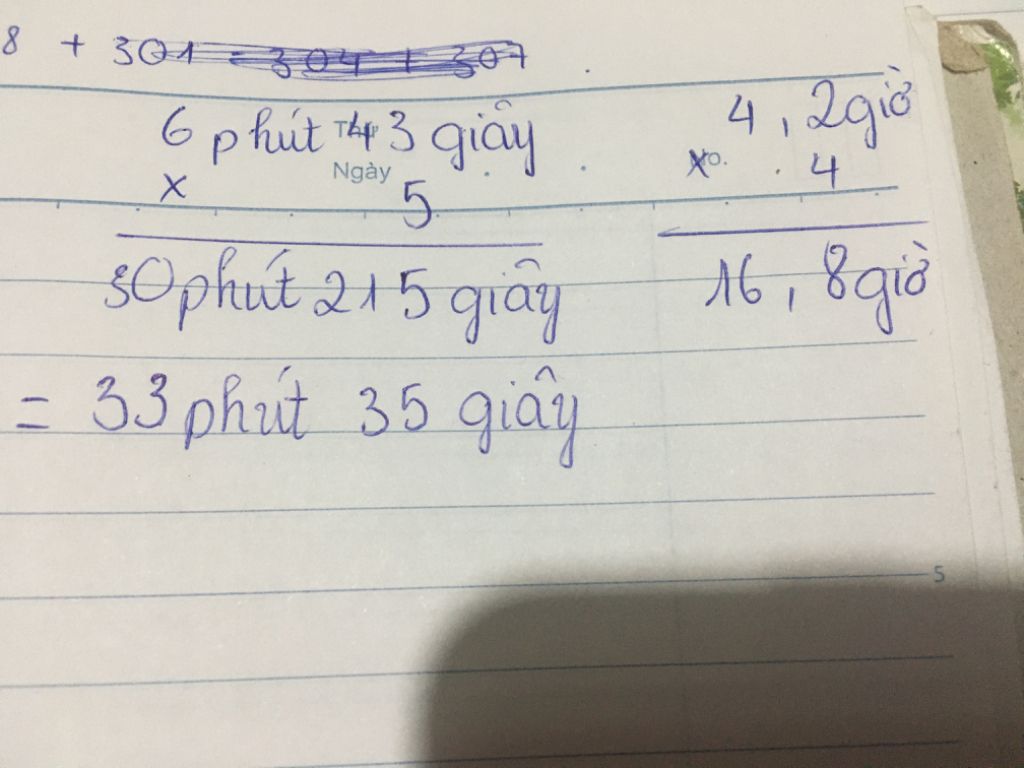 8 + 301 = 304 + 307
6 phút 43 giây
Thứ
Ngày
x 5
30 phút 215 giây
= 33 phút 35 giây
4,2 giờ
No.
x 4
16,8 giờ
5